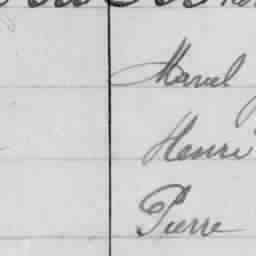 Marcel
Henri
Pierre